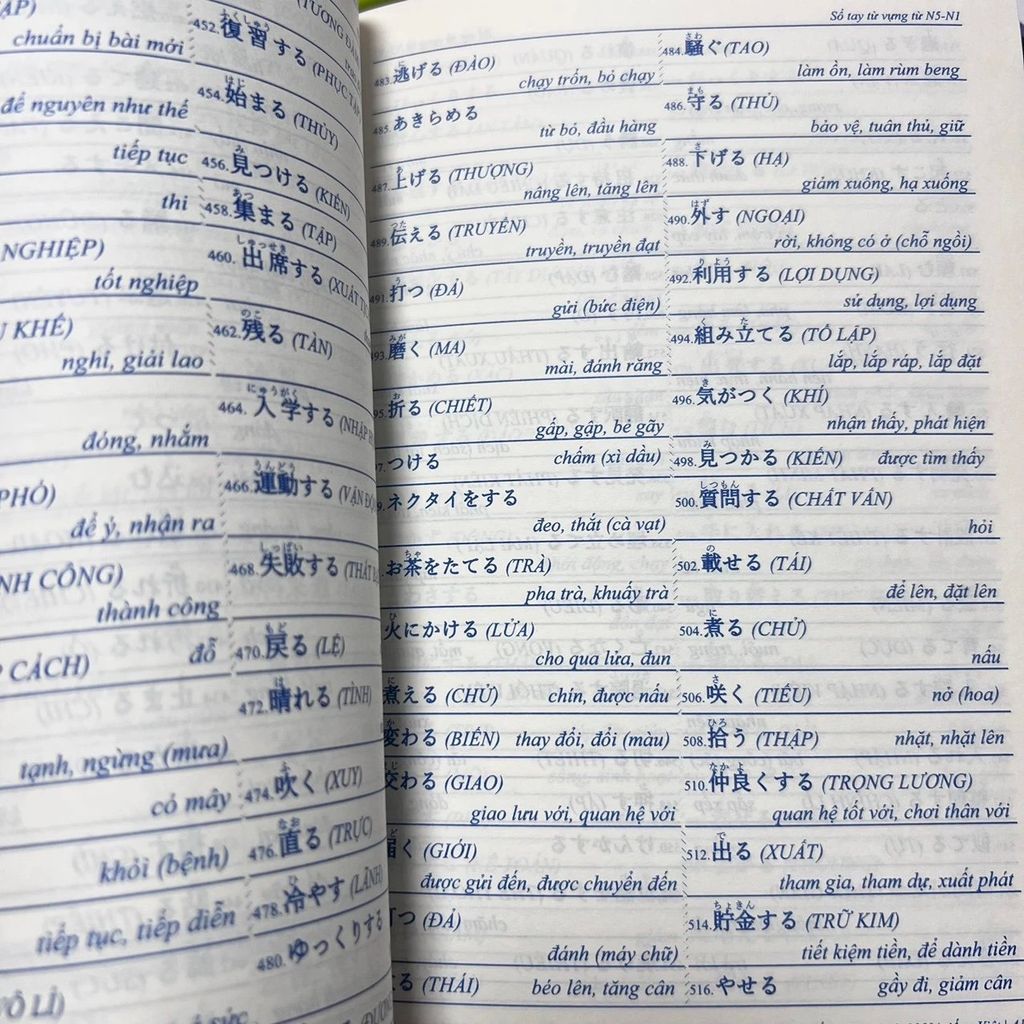 chuẩn bị bài mới
để nguyên như thế
tiếp tục
thi
NGHIỆP)
tốt nghiệp
KHẾ)
nghỉ, giải lao
đóng, nhắm
PHÓ)
để ý, nhận ra
CÔNG)
thành công
CÁCH)
đỗ
tạnh, ngừng (mưa)
có mây
khỏi (bệnh)
tiếp tục, tiếp diễn
452.復習する (PHỤC TẬP
ふくしゅう
454.始まる (THỦY)
はじ
456.見つける (KIẾN)
み
458.集まる (TẬP)
あつ
460.出席する (XUẤT
しゅっせき
462.残る (TÀN)
のこ
464.入学する (NHẬP
にゅうがく
466.運動する (VẬN
うんどう
468.失敗する (THẤT
しっぱい
470.戻る (LỆ)
もど
472.晴れる (TÌNH)
は
474.吹く (XUY)
ふ
476.直る (TRỰC)
なお
478.冷やす (LÃNH)
ひ
480.ゆっくりする
Sổ tay từ vựng từ N5-N1
483.逃げる (ĐÀO)
に
chạy trốn, bỏ chạy
485.あきらめる
từ bỏ, đầu hàng
487.上げる (THƯỢNG)
あ
nâng lên, tăng lên
489.伝える (TRUYỀN)
つた
truyền, truyền đạt
491.打つ (ĐẢ)
う
gửi (bức điện)
493.磨く (MA)
みが
mài, đánh răng
95.折る (CHIẾT)
お
gấp, gập, bẻ gãy
97.つける
chấm (xì dầu)
ネクタイをする
đeo, thắt (cà vạt)
お茶をたてる (TRÀ)
ちゃ
pha trà, khuấy trà
火にかける (LỬA)
ひ
cho qua lửa, đun
煮える (CHỬ)
に
chín, được nấu
変わる (BIẾN)
か
thay đổi, đổi (màu)
交わる (GIAO)
giao lưu với, quan hệ với
届く (GIỚI)
được gửi đến, được chuyển đến
打つ (ĐẢ)
đánh (máy chữ)
る (THÁI)
béo lên, tăng cân
484.騒ぐ(TAO)
さわ
làm ồn, làm rùm beng
486.守る (THỦ)
まも
bảo vệ, tuân thủ, giữ
488.下げる (HẠ)
さ
giảm xuống, hạ xuống
490.外す (NGOẠI)
はず
rời, không có ở (chỗ ngồi)
492.利用する (LỢI DỤNG)
りよう
sử dụng, lợi dụng
494.組み立てる (TỔ LẬP)
く た
lắp, lắp ráp, lắp đặt
496.気がつく (KHÍ)
き
nhận thấy, phát hiện
498.見つかる (KIẾN)
み
được tìm thấy
500.質問する (CHẤT VẤN)
しつもん
hỏi
502.載せる (TÁI)
の
để lên, đặt lên
504.煮る (CHỬ)
に
nấu
506.咲く (TIẾU)
さ
nở (hoa)
508.拾う (THẬP)
ひろ
nhặt, nhặt lên
510.仲良くする (TRỌNG LƯƠNG)
なかよ
quan hệ tốt với, chơi thân với
512.出る (XUẤT)
で
tham gia, tham dự, xuất phát
514.貯金する (TRỮ KIM)
ちょきん
tiết kiệm tiền, để dành tiền
516.やせる
gầy đi, giảm cân